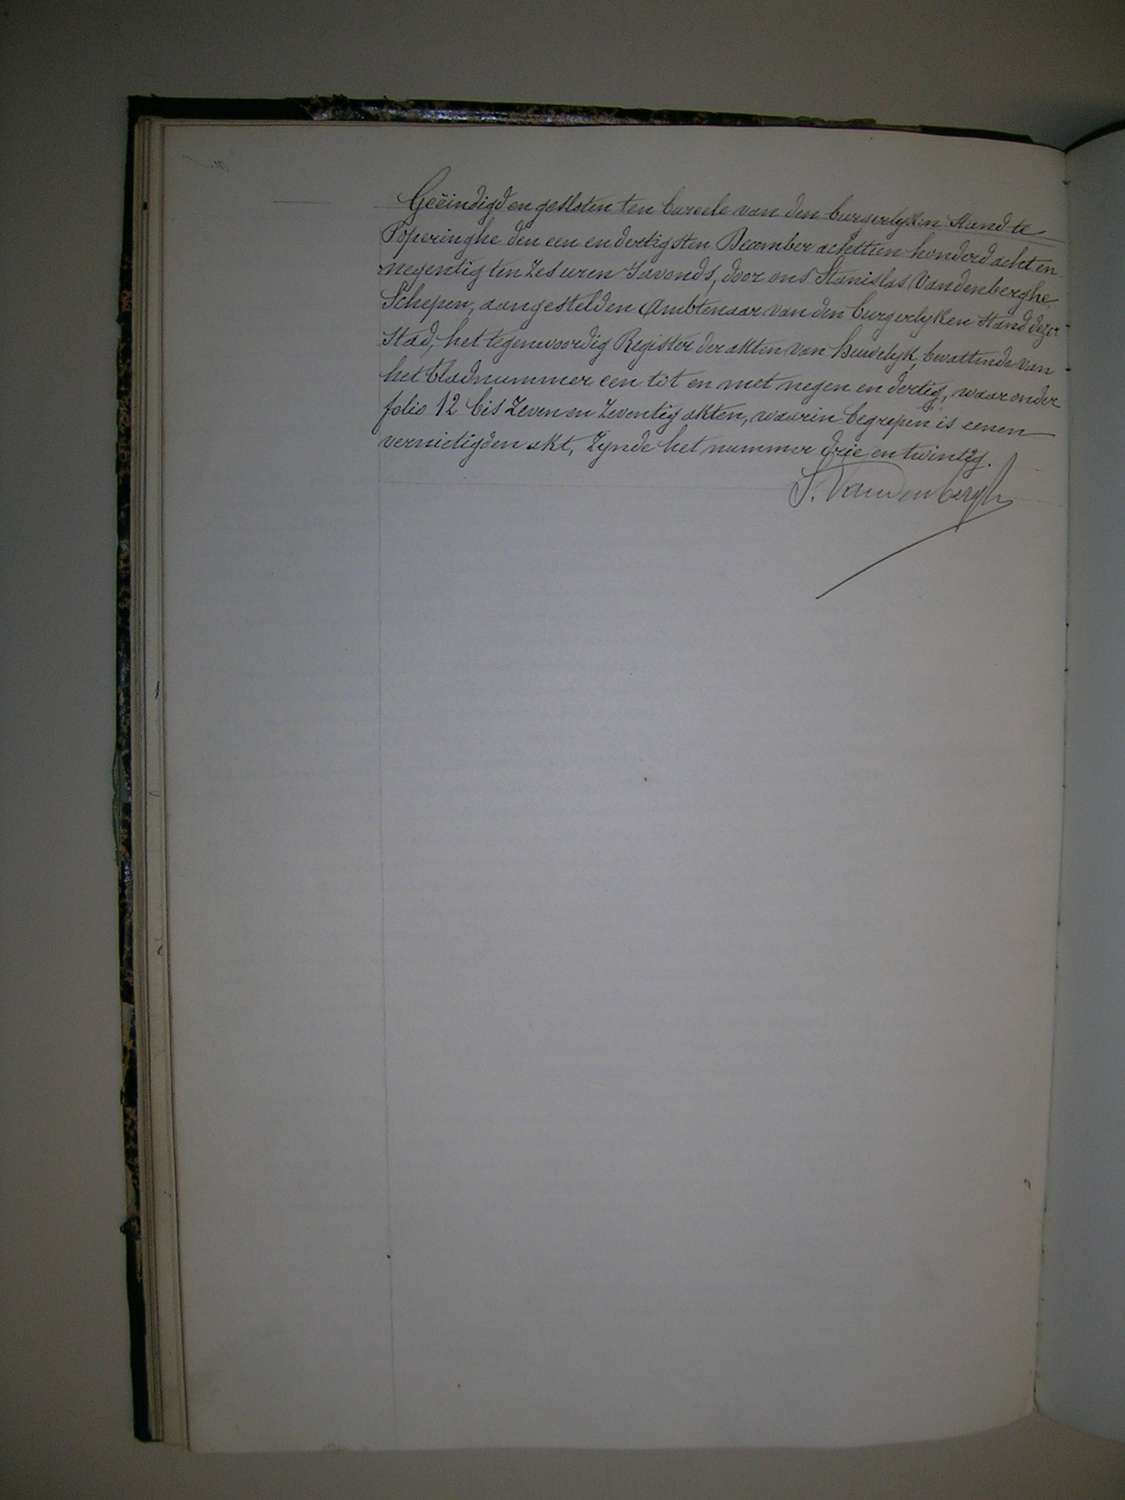 Geëindigd en gesloten ten bureele van den burgerlyken Stand te
Poperinghe den een en dertigsten December achttien honderd acht en
negentig ten Zes uren s'avonds, door ons Stanislas Vandenberghe
Schepen, aangestelden Ambtenaar van den burgerlyken Stand dezer
Stad, het tegenwoordig Register der akten van huwelyk, bevattende van
het bladnummer een tot en met negen en dertig, waaronder
folio 12 bis Zeven en Zeventig akten, waarin begrepen is eenen
vernietigden akt, Zynde het nummer drie en twintig.
S. Vandenbergh